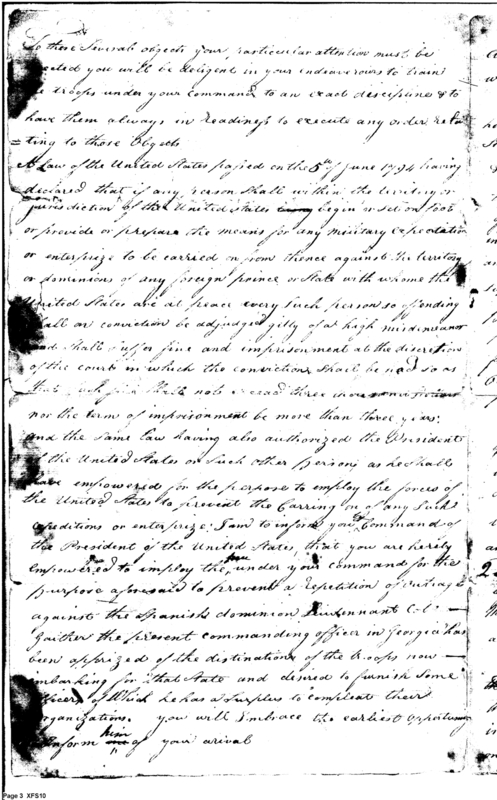 To these Several objects your particular attention must be
you will be deligent in your endeavours to train
troops under your command to an exact discipline & to
have them always in readiness to execute any order rela
=ting to those Objects
A Law of the United States passed on the 5th of June 1794 having
declared that if any person shall within the territory or
jurisdiction of the United States begin or set on foot
or provide or prepare the means for any military expedition
or enterprize to be carried on from thence against the territory
or dominions of any foreign prince or State with whome the
United States are at peace every such person so offending
shall on conviction be adjudged gilty of a high misdemeanor
and shall suffer fine and imprisonment at the discretion
of the court in which the conviction shall be had so as
that such fine shall not exceed three
nor the term of imprisonment be more than three years:
and the same law having also authorized the President
of the United States or such other person as he shall
have empowered for the purpose to employ the forces of
the United States to prevent the Carring on of any such
expeditions or enterprize; I am to inform you Command of
the President of the United States, that you are hereby
empowered to imploy the under your command for the
purpose aforesaid to prevent a repetition of outrage
against the Spanish dominion Lieutennant Col.
Gaither the present commanding officer in Georgia has
been apprized of the distination of the troops now
imbarking for that State and desired to furnish some
officers of which he has a surplus to compleate their
organizations. you will Imbrace the earliest oppertunity
inform him of your arival
Page 3 XFS10